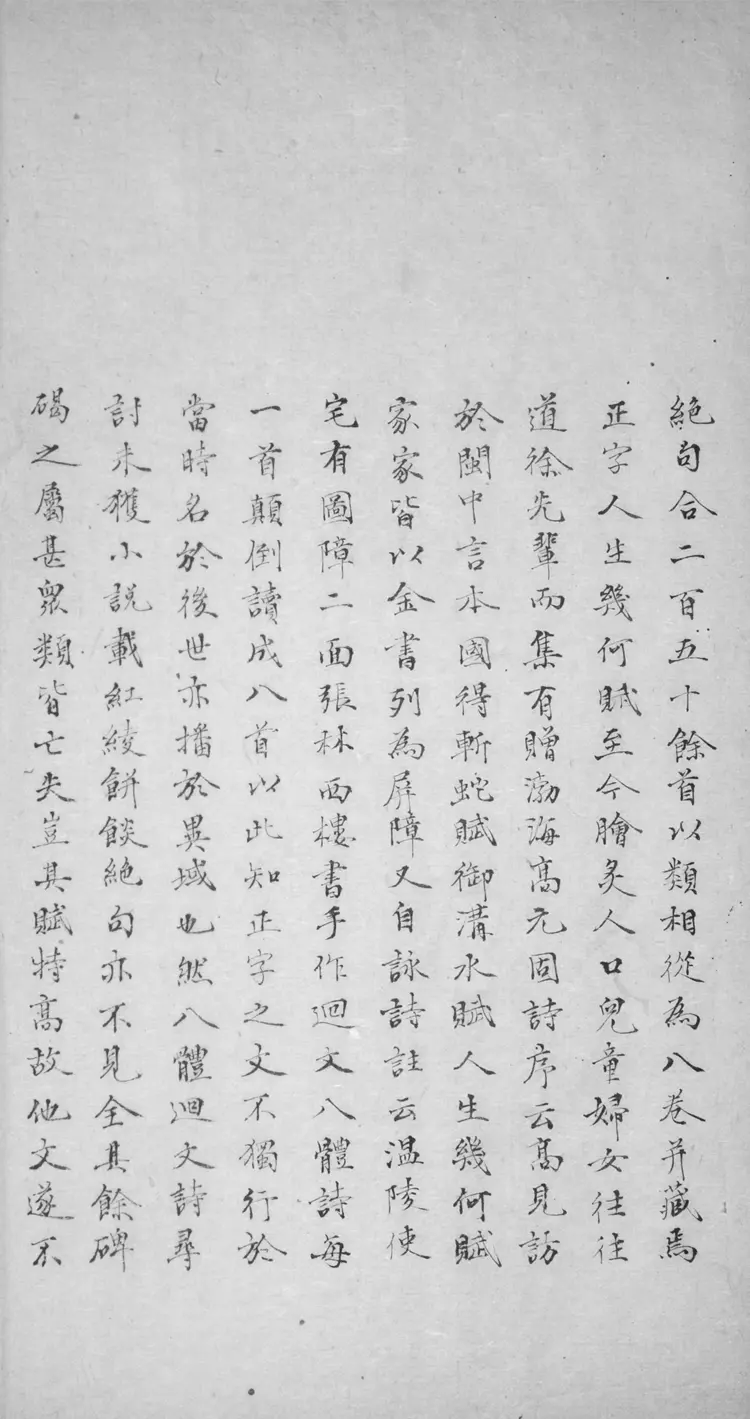 絶句合二百五十餘首以類相從為八卷并藏焉
正字人生幾何賦至今膾炙人口兒童婦女往往
道徐先輩而集有贈渤海高元固詩序云高見訪
於閩中言本國得斬蛇賦御溝水賦人生幾何賦
家家皆以金書列為屏障又自詠詩註云温陵使
宅有圖障二面張林西樓書手作迴文八體詩每
一首顛倒讀成八首以此知正字之文不獨行於
當時名於後世亦播於異域也然八體迴文詩尋
討未獲小說載紅綾餅餤絶句亦不見全其餘碑
碣之屬甚衆類皆亡失豈其賦特高故他文遂不